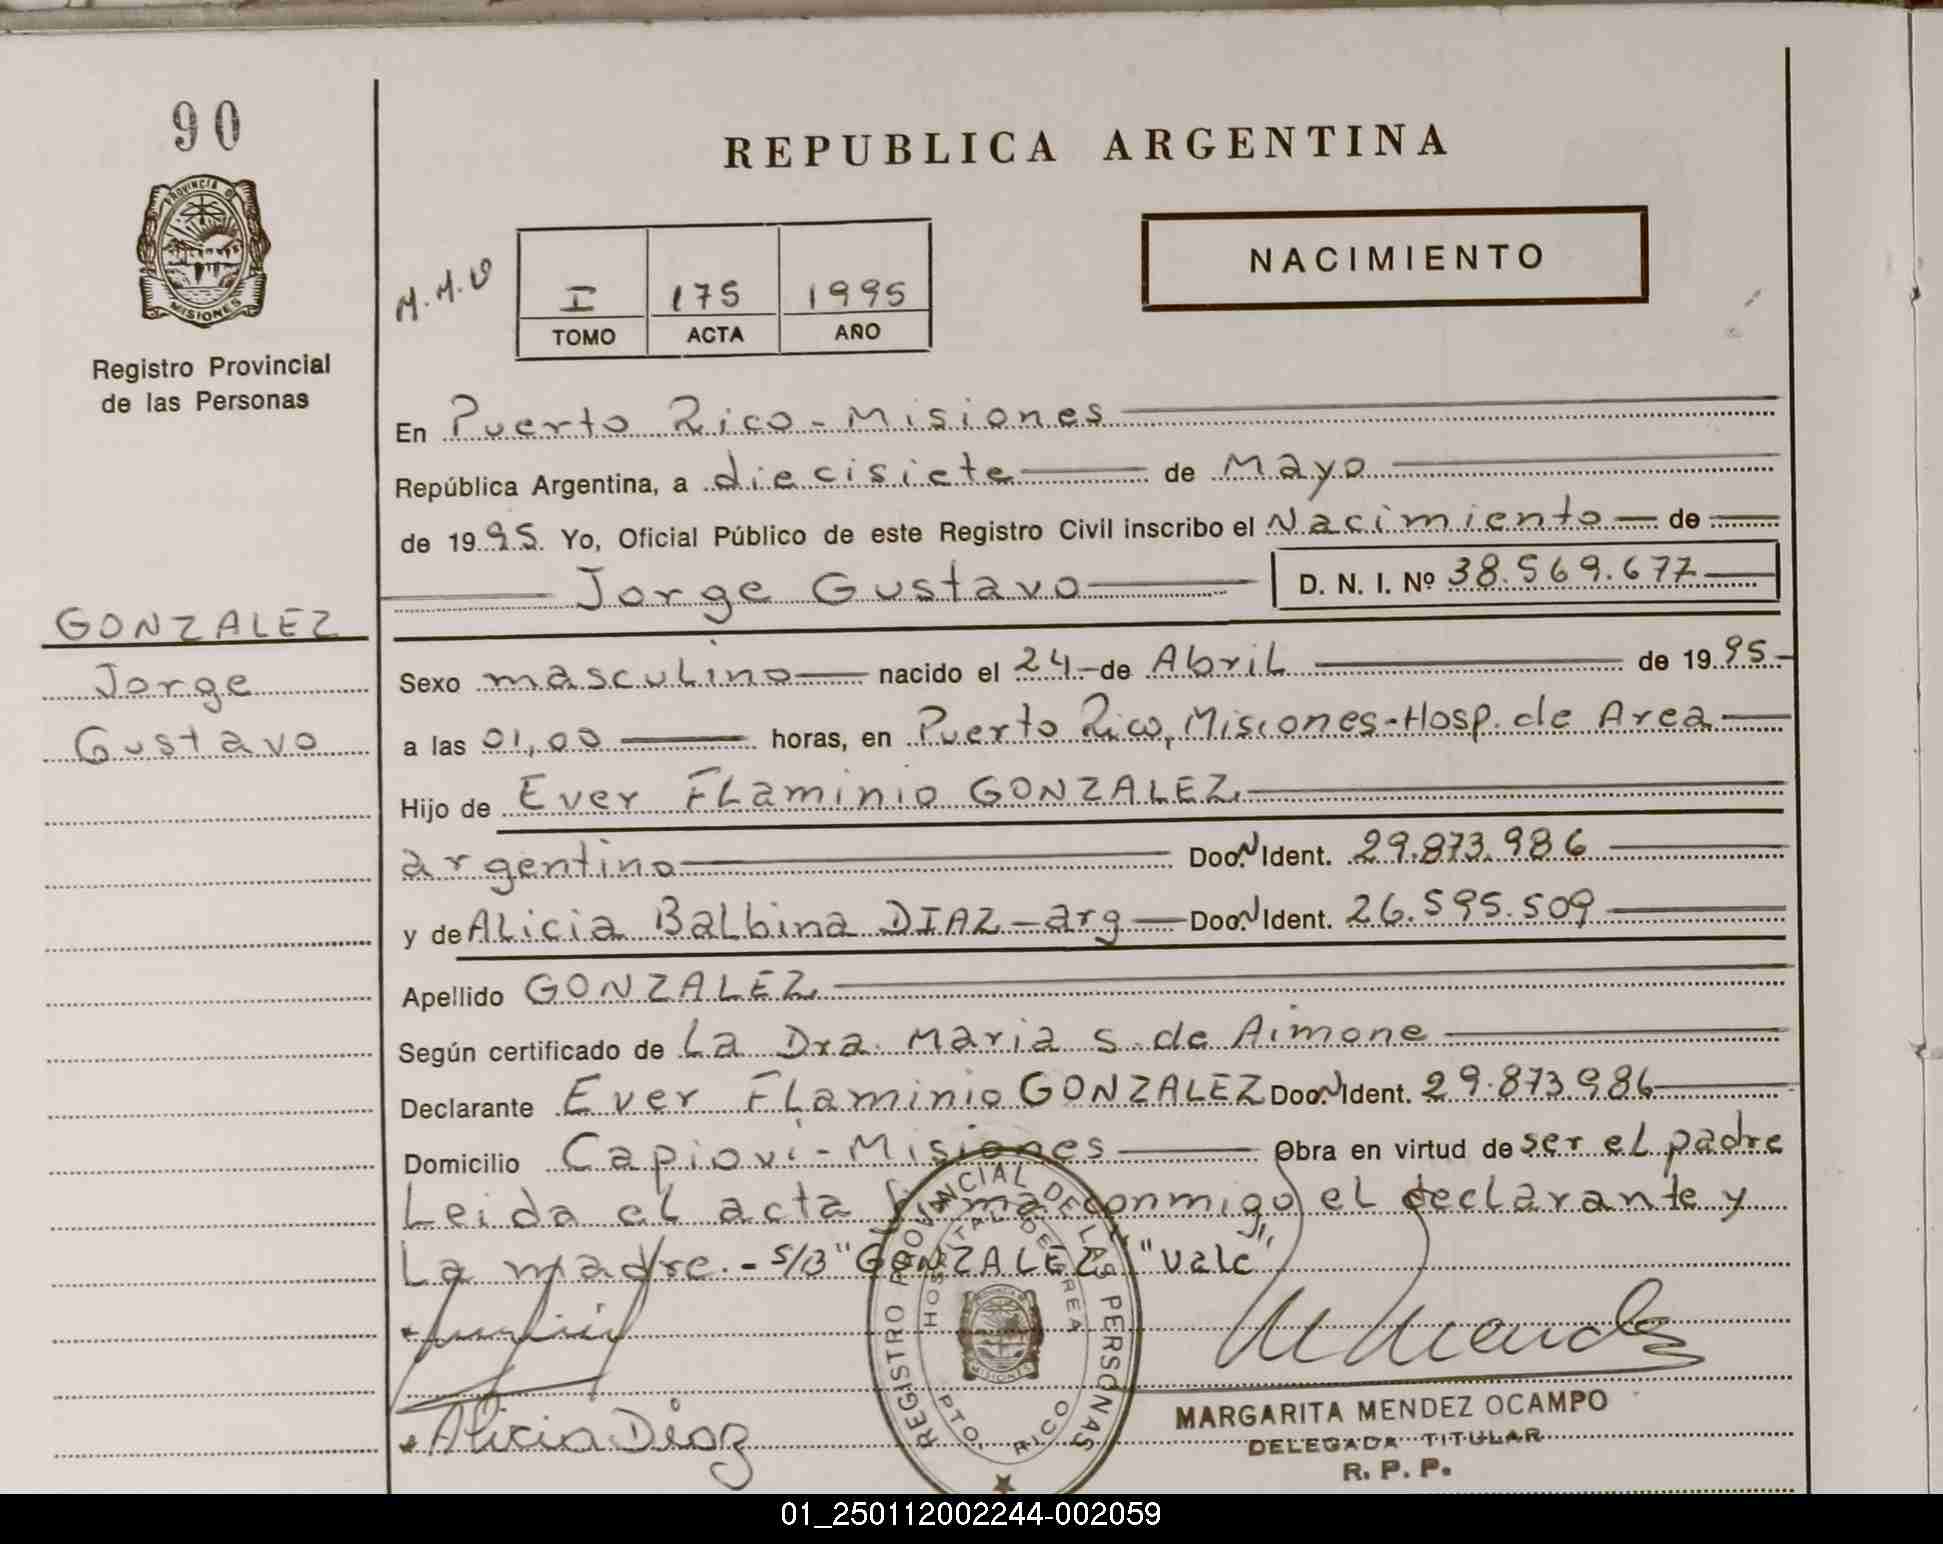 90
REPUBLICA ARGENTINA
PROVINCIA DE
MISIONES
Registro Provincial
de las Personas
M.M.O
I 175 1995
TOMO ACTA AÑO
NACIMIENTO
En Puerto Rico - Misiones
República Argentina, a diecisiete de Mayo
de 1995. Yo, Oficial Público de este Registro Civil inscribo el Nacimiento de
Jorge Gustavo D. N. I. Nº 38.569.677
GONZALEZ
Jorge
Gustavo
Sexo masculino nacido el 24 de Abril de 1995
a las 01,00 horas, en Puerto Rico, Misiones-Hosp. de Area
Hijo de Ever Flaminio GONZALEZ
argentino Doc. N Ident. 29.873.986
y de Alicia Balbina DIAZ - arg Doc. N Ident. 26.595.509
Apellido GONZALEZ
Según certificado de La Dra. Maria S. de Aimone
Declarante Ever Flaminio GONZALEZ Doc. N Ident. 29.873.986
Domicilio Capiovi - Misiones Obra en virtud de ser el padre
Leida el acta firma conmigo el declarante y
La madre. - S/B "GONZALEZ" "Vale"
REGISTRO PROVINCIAL DE LAS PERSONAS
HOSPITAL DE AREA
PTO. RICO
Alicia Diaz
MARGARITA MENDEZ OCAMPO
DELEGADA TITULAR
R. P. P.
01_250112002244-002059